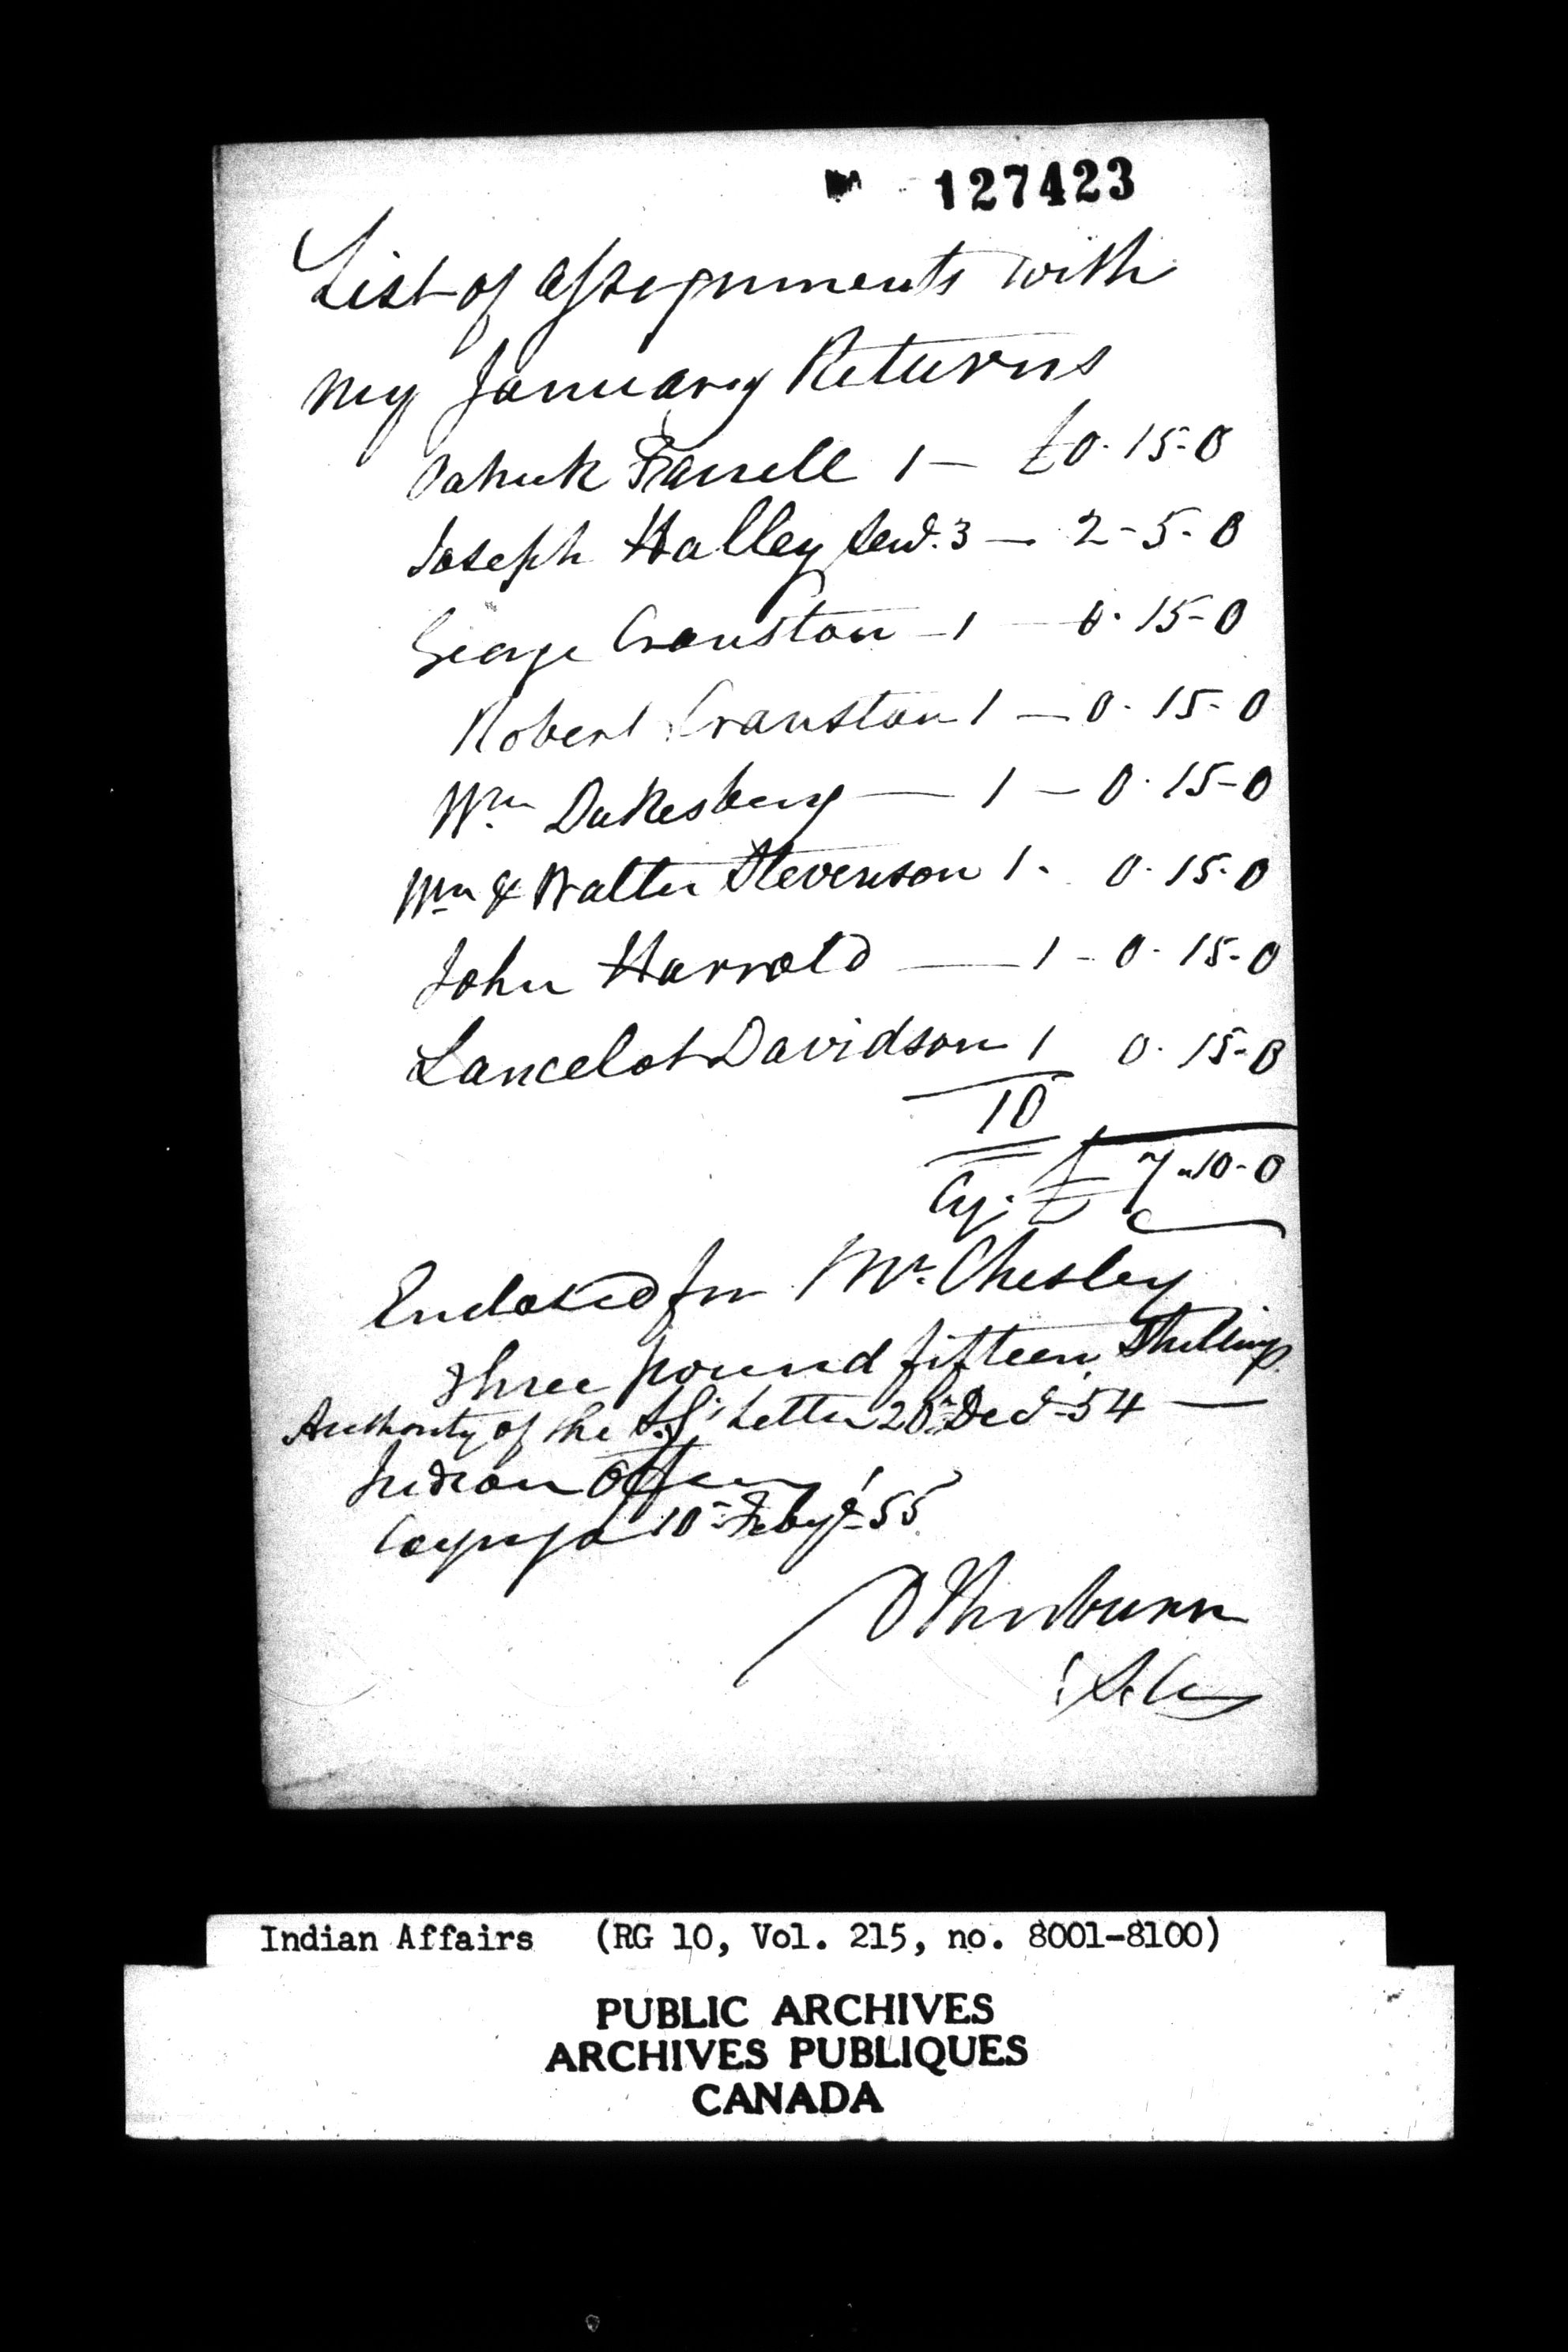 127423
List of assignments with
my January Returns
Patrick Farrell 1 — £0-15-0
Joseph Halley Senr. 3 — 2-5-0
George Cranston — 1 — 0-15-0
Robert Cranston 1 — 0-15-0
Wm Dukesbury — 1 — 0-15-0
Wm & Walter Stevenson 1 - 0-15-0
John Harrold — 1 - 0-15-0
Lancelot Davidson 1 0-15-0
10
Cy. £ 7-10-0
Enclosed for Mr. Chesley
three pound fifteen Shillings
Authority of the S.G. Letter 20th Decr 54 —
Indian Office
Cayuga 10th Feby 55
D Thorburn
Indian Affairs (RG 10, Vol. 215, no. 8001-8100)
PUBLIC ARCHIVES
ARCHIVES PUBLIQUES
CANADA